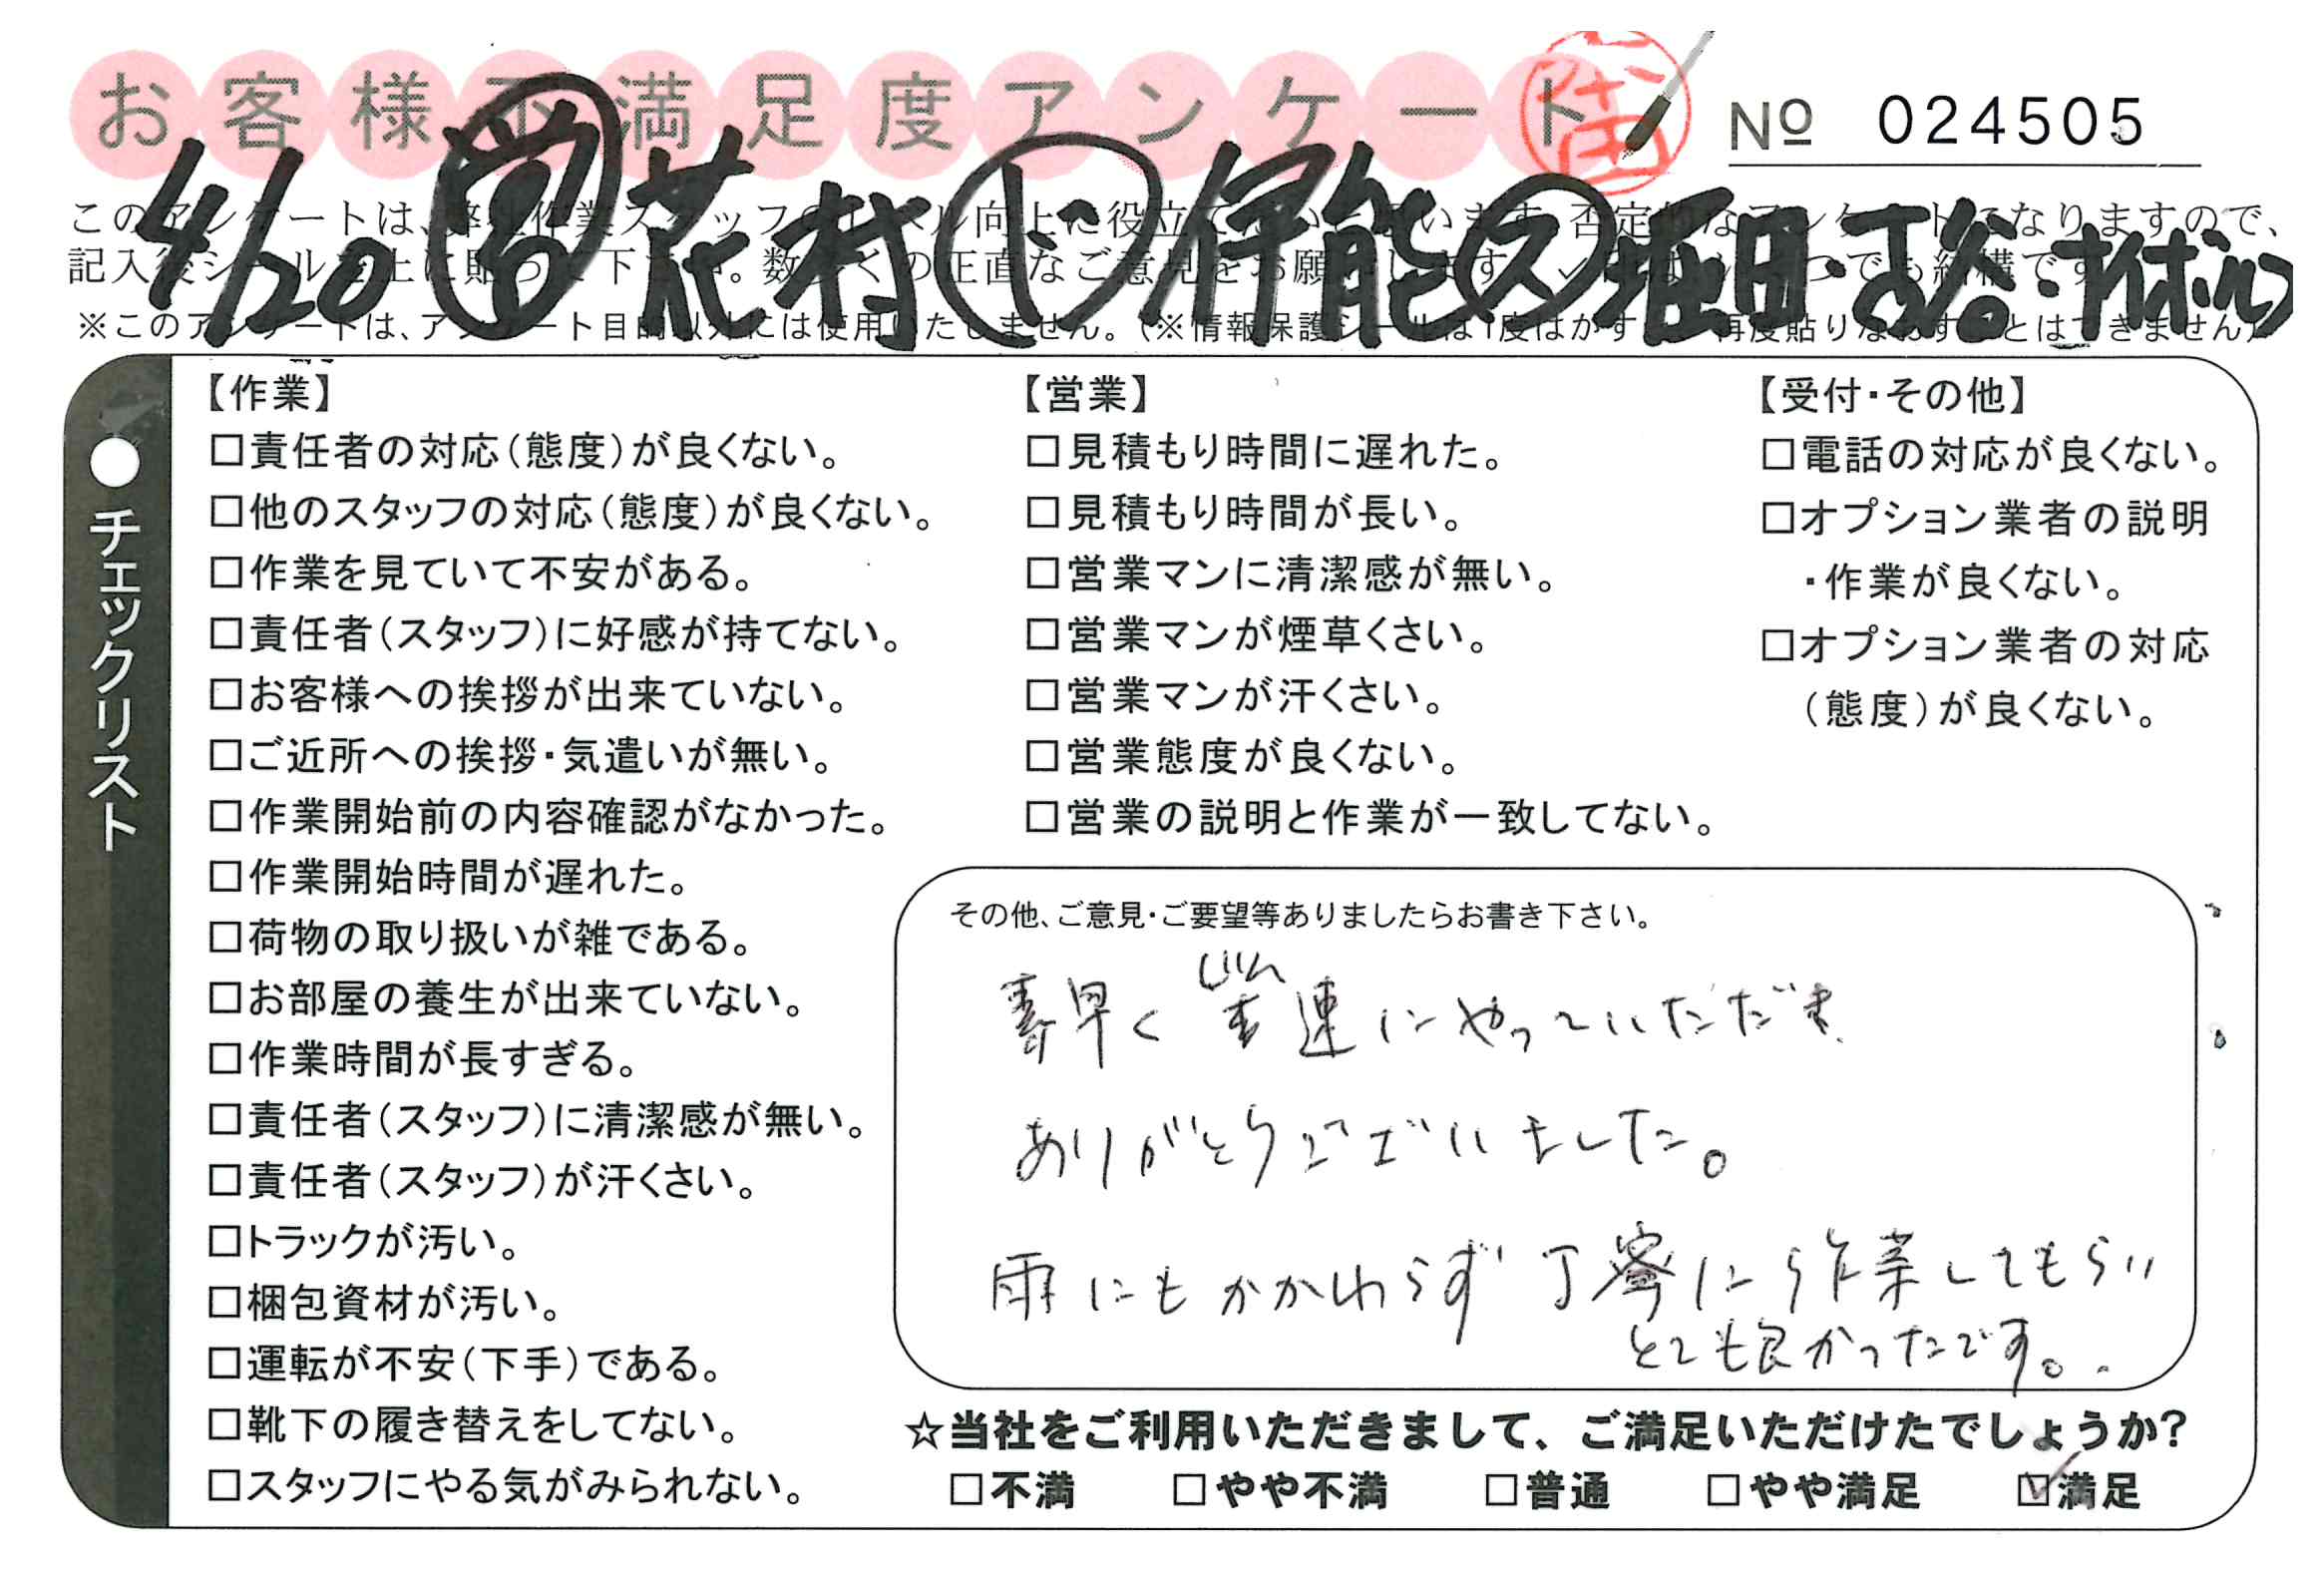 お客様不満足度アンケート
№ 024505
4/20 営 花村 リ 伊能 ス 堀田・下谷・ナイボルフ
※このアンケートは、アンケート目的以外には使用いたしません。(※情報保護シールは1度はがすと、再度貼りなおすことはできません)
●チェックリスト
【作業】
□責任者の対応(態度)が良くない。
□他のスタッフの対応(態度)が良くない。
□作業を見ていて不安がある。
□責任者(スタッフ)に好感が持てない。
□お客様への挨拶が出来ていない。
□ご近所への挨拶・気遣いが無い。
□作業開始前の内容確認がなかった。
□作業開始時間が遅れた。
□荷物の取り扱いが雑である。
□お部屋の養生が出来ていない。
□作業時間が長すぎる。
□責任者(スタッフ)に清潔感が無い。
□責任者(スタッフ)が汗くさい。
□トラックが汚い。
□梱包資材が汚い。
□運転が不安(下手)である。
□靴下の履き替えをしてない。
□スタッフにやる気がみられない。
【営業】
□見積もり時間に遅れた。
□見積もり時間が長い。
□営業マンに清潔感が無い。
□営業マンが煙草くさい。
□営業マンが汗くさい。
□営業態度が良くない。
□営業の説明と作業が一致してない。
【受付・その他】
□電話の対応が良くない。
□オプション業者の説明
・作業が良くない。
□オプション業者の対応
(態度)が良くない。
その他、ご意見・ご要望等ありましたらお書き下さい。
素早く じん速にやっていただだき
ありがとうございました。
雨にもかかわらず 丁寧に作業してもらい
とても良かったです。
☆当社をご利用いただきまして、ご満足いただけたでしょうか?
□不満 □やや不満 □普通 □やや満足 ☑満足